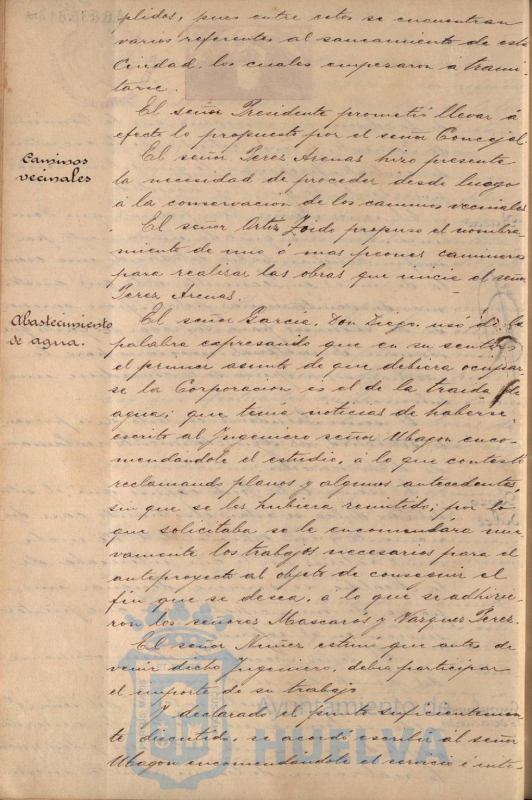 plidos, pues entre estos se encuentran
varios referentes al saneamiento de esta
Ciudad, los cuales empesaron á trami-
tarse.
El señor Presidente prometió llevar á
efecto lo propuesto por el señor Concejal.
Caminos
vecinales
El señor Perez Arenas hizo presente
la necesidad de proceder desde luego
á la conservacion de los caminos vecinales
El señor Ortiz Zoido propuso el nombra-
miento de uno ó mas peones camineros
para realizar las obras que inicie el señor
Perez Arenas.
Abastecimiento
de agua.
El señor Garcia, Don Diego, usó de la
palabra expresando que en su sentir
el primer asunto de que debiera ocupar-
se la Corporacion es el de la traida de
agua; que tenia noticias de haberse
escrito al Ingeniero señor Ubagon enco-
mendándole el estudio, á lo que contestó
reclamando planos y algunos antecedentes
sin que se les hubiera remitido; por lo
que solicitaba se le encomendára nue-
vamente los trabajos necesarios para el
anteproyecto al objeto de conseguir el
fin que se desea, á lo que se adhirie-
ron los señores Mascarós y Vazquez Perez.
El señor Nuñez estimó que antes de
venir dicho Ingeniero, debia participar
el importe de su trabajo
Y declarado el punto suficientemen-
te discutido, se acordó escribir al señor
Ubagon encomendándole el servicio é inte-
Ayuntamiento de
HUELVA